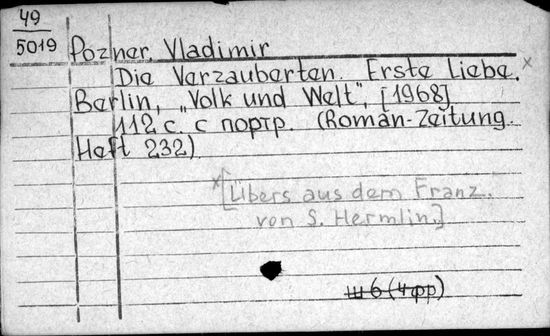 49
5019
Pozner, Vladimir
Die Verzauberten. Erste Liebe. ×
Berlin, „Volk und Welt", [1968]
112 с. с портр. (Roman-Zeitung.
Heft 232)
×[Übers aus dem Franz.
von S. Hermlin.]
ш6 (4фр)